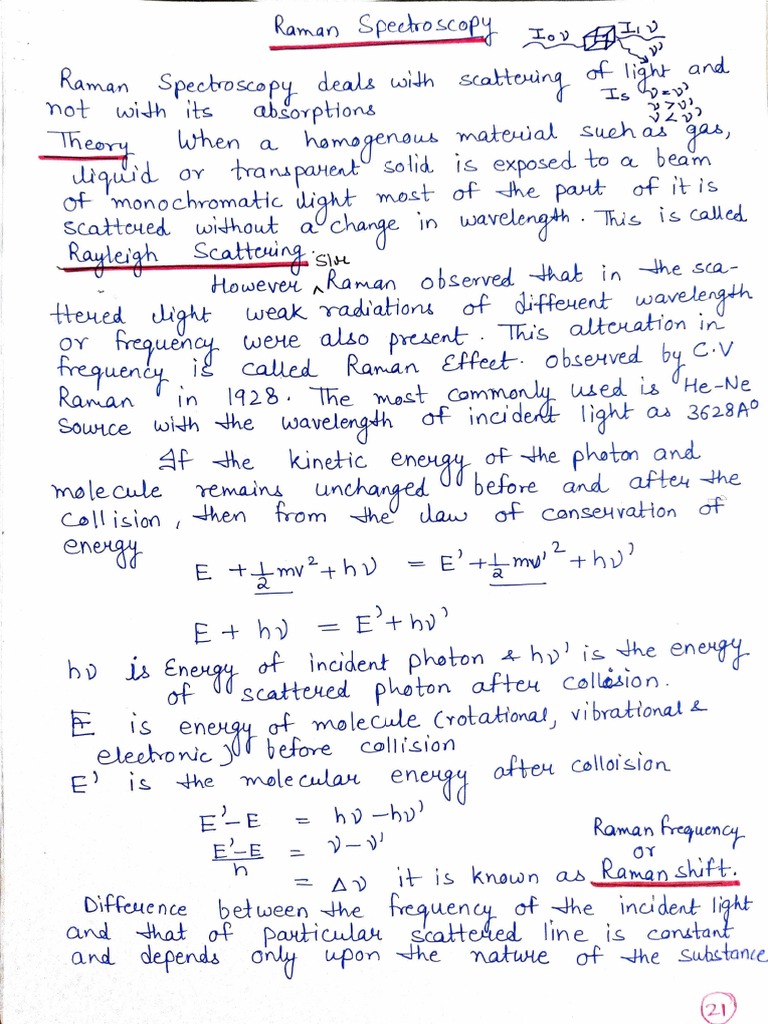 Raman Spectroscopy
I₀ν I₁ν
ν'
Raman Spectroscopy deals with scattering of light and
Is ν=ν'
not with its absorptions
ν>ν'
ν<ν'
Theory When a homogenous material such as gas,
liquid or transparent solid is exposed to a beam
of monochromatic light most of the part of it is
scattered without a change in wavelength. This is called
Rayleigh Scattering.
However Sir Raman observed that in the sca-
ttered light weak radiations of different wavelength
or frequency were also present. This alteration in
frequency is called Raman Effect. observed by C.V
Raman in 1928. The most commonly used is He-Ne
source with the wavelength of incident light as 3628A°
If the kinetic energy of the photon and
molecule remains unchanged before and after the
collision, then from the law of conservation of
energy
E + 1/2 mv² + hν = E' + 1/2 mv'² + hν'
E + hν = E' + hν'
hν is Energy of incident photon & hν' is the energy
of scattered photon after collision.
E is energy of molecule (rotational, vibrational &
electronic) before collision
E' is the molecular energy after colloision
E'-E = hν-hν'
E'-E/h = ν-ν'
Raman frequency
or
= Δν it is known as Raman shift.
Difference between the frequency of the incident light
and that of particular scattered line is constant
and depends only upon the nature of the substance
21